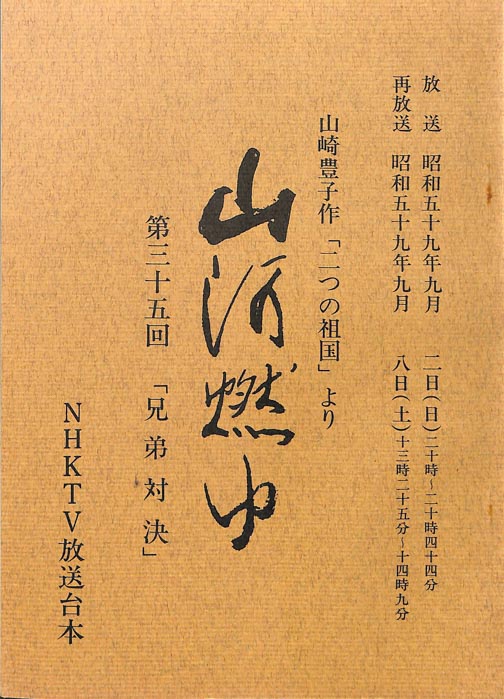 放送 昭和五十九年九月 二日(日)二十時~二十時四十四分
再放送 昭和五十九年九月 八日(土)十三時二十五分~十四時九分
山崎豊子作「二つの祖国」より
山河燃ゆ
第三十五回 「兄弟対決」
NHKTV放送台本